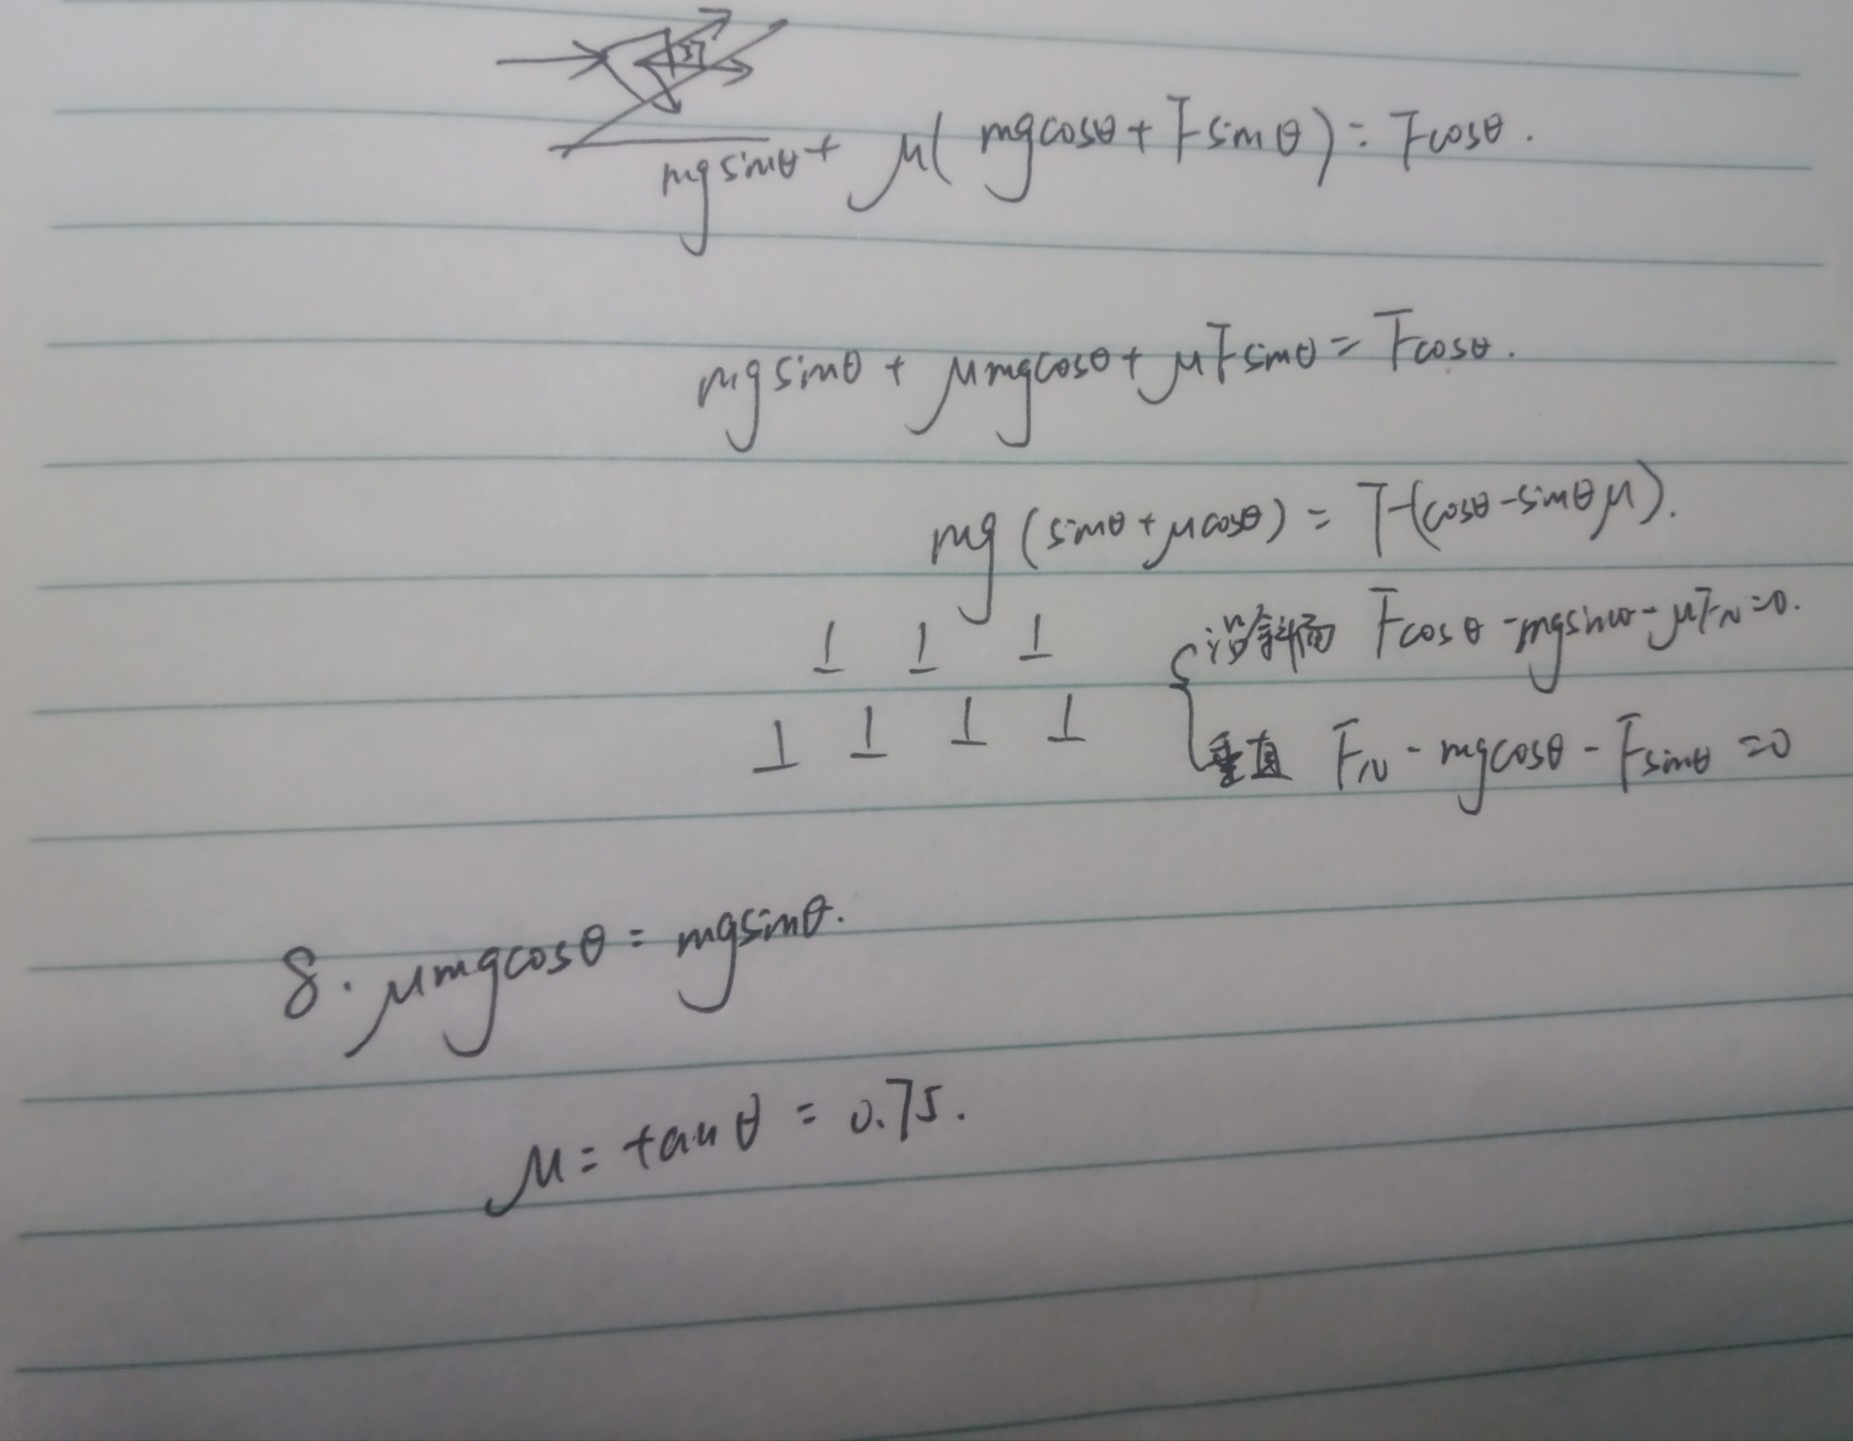 37
mgsinθ + μ(mgcosθ + Fsinθ) = Fcosθ.
mgsinθ + μmgcosθ + μFsinθ = Fcosθ.
mg(sinθ + μcosθ) = F(cosθ - sinθμ).
沿斜面 Fcosθ - mgsinθ - μF_N = 0.
垂直 F_N - mgcosθ - Fsinθ = 0
⊥ ⊥ ⊥
⊥ ⊥ ⊥ ⊥
8. μmgcosθ = mgsinθ.
μ = tanθ = 0.75.